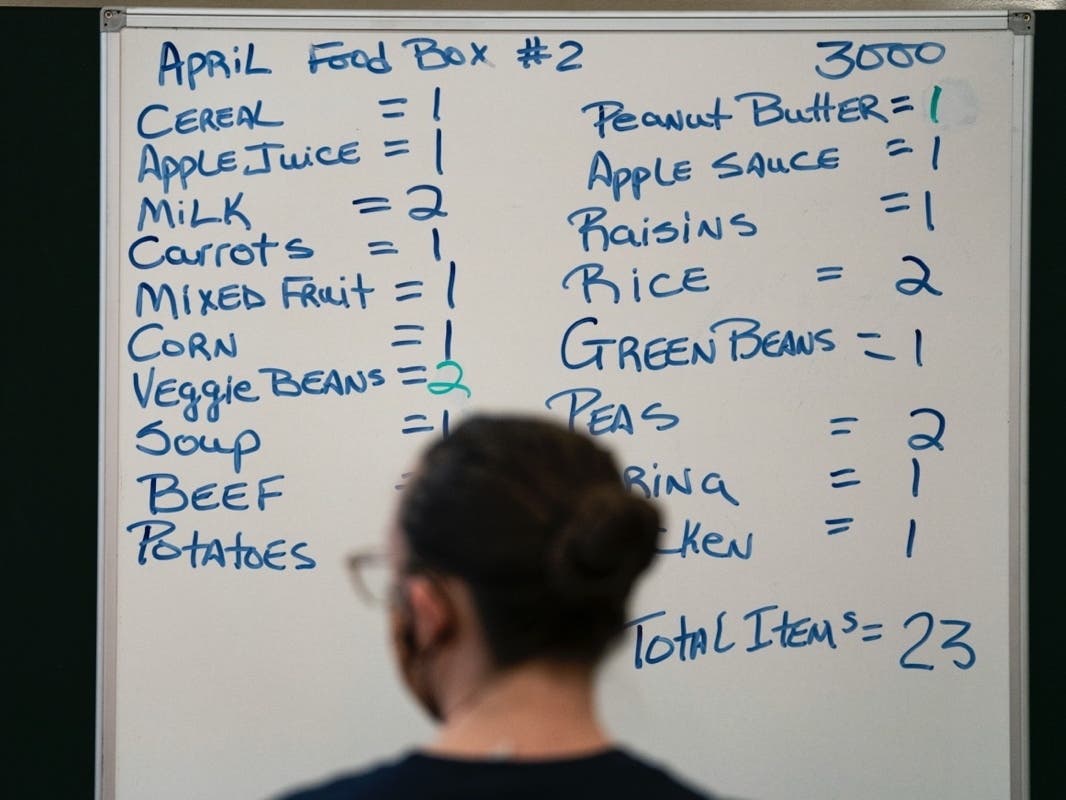 APRIL Food Box #2
CEREAL = 1
APPLE JUICE = 1
MILK = 2
Carrots = 1
MIXED FRUIT = 1
CORN = 1
Veggie BEANS = 2
Soup = 1
BEEF =
POTATOES
3000
Peanut Butter = 1
APPLE SAUCE = 1
Raisins = 1
RICE = 2
GREEN BEANS = 1
PEAS = 2
= 1
= 1
TOTAL ITEMS = 23